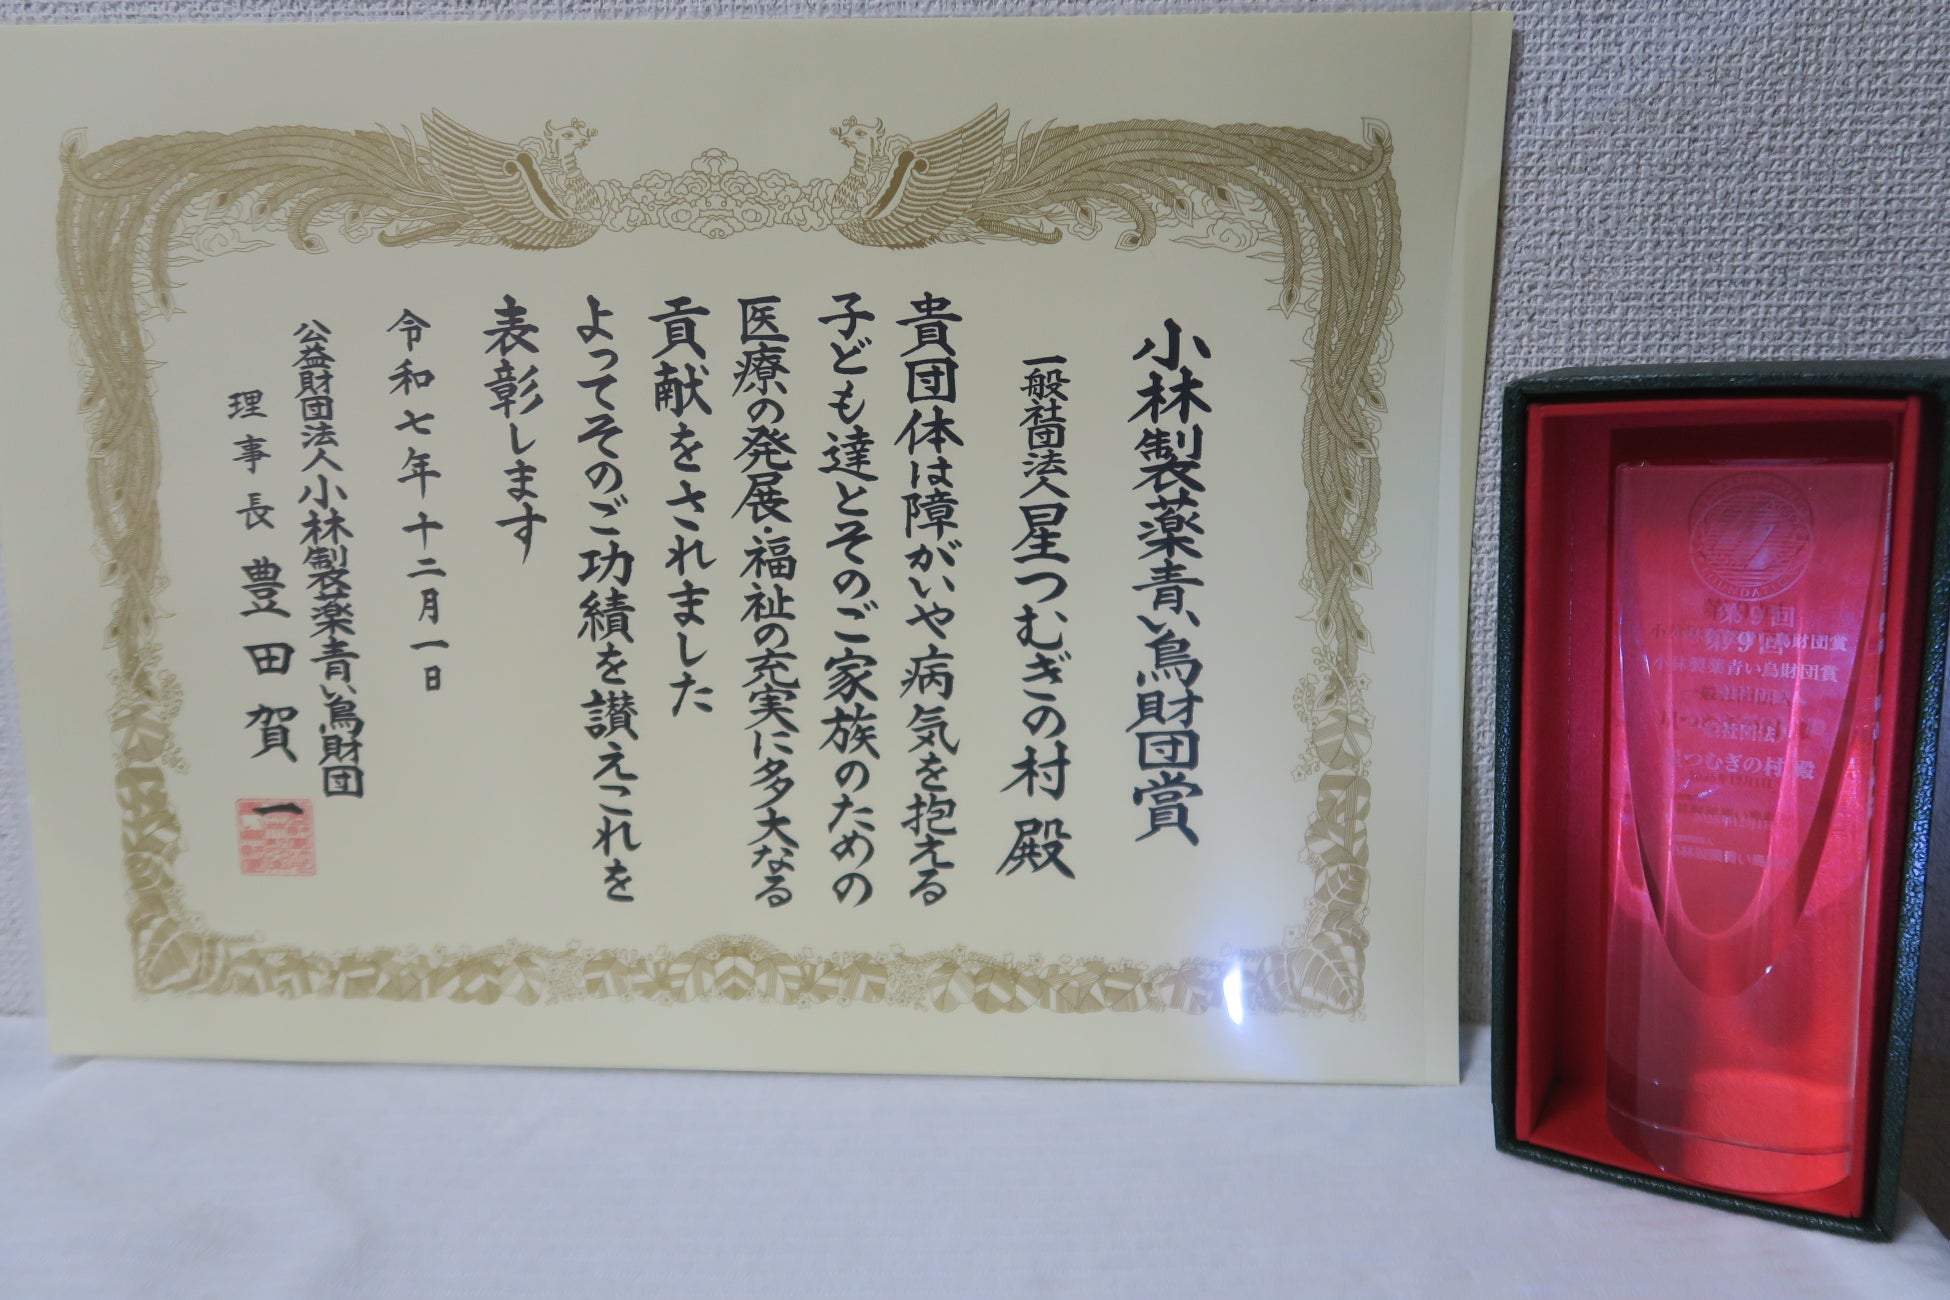 小林製薬青い鳥財団賞
一般社団法人星つむぎの村 殿
貴団体は障がいや病気を抱える
子ども達とそのご家族のための
医療の発展・福祉の充実に多大なる
貢献をされました
よってそのご功績を讃えこれを
表彰します
令和七年十二月一日
公益財団法人小林製薬青い鳥財団
理事長 豊田賀一
FOUNDATION
第9回
小林製薬青い鳥財団賞
一般社団法人
星つむぎの村 殿
2025年12月1日
小林製薬青い鳥